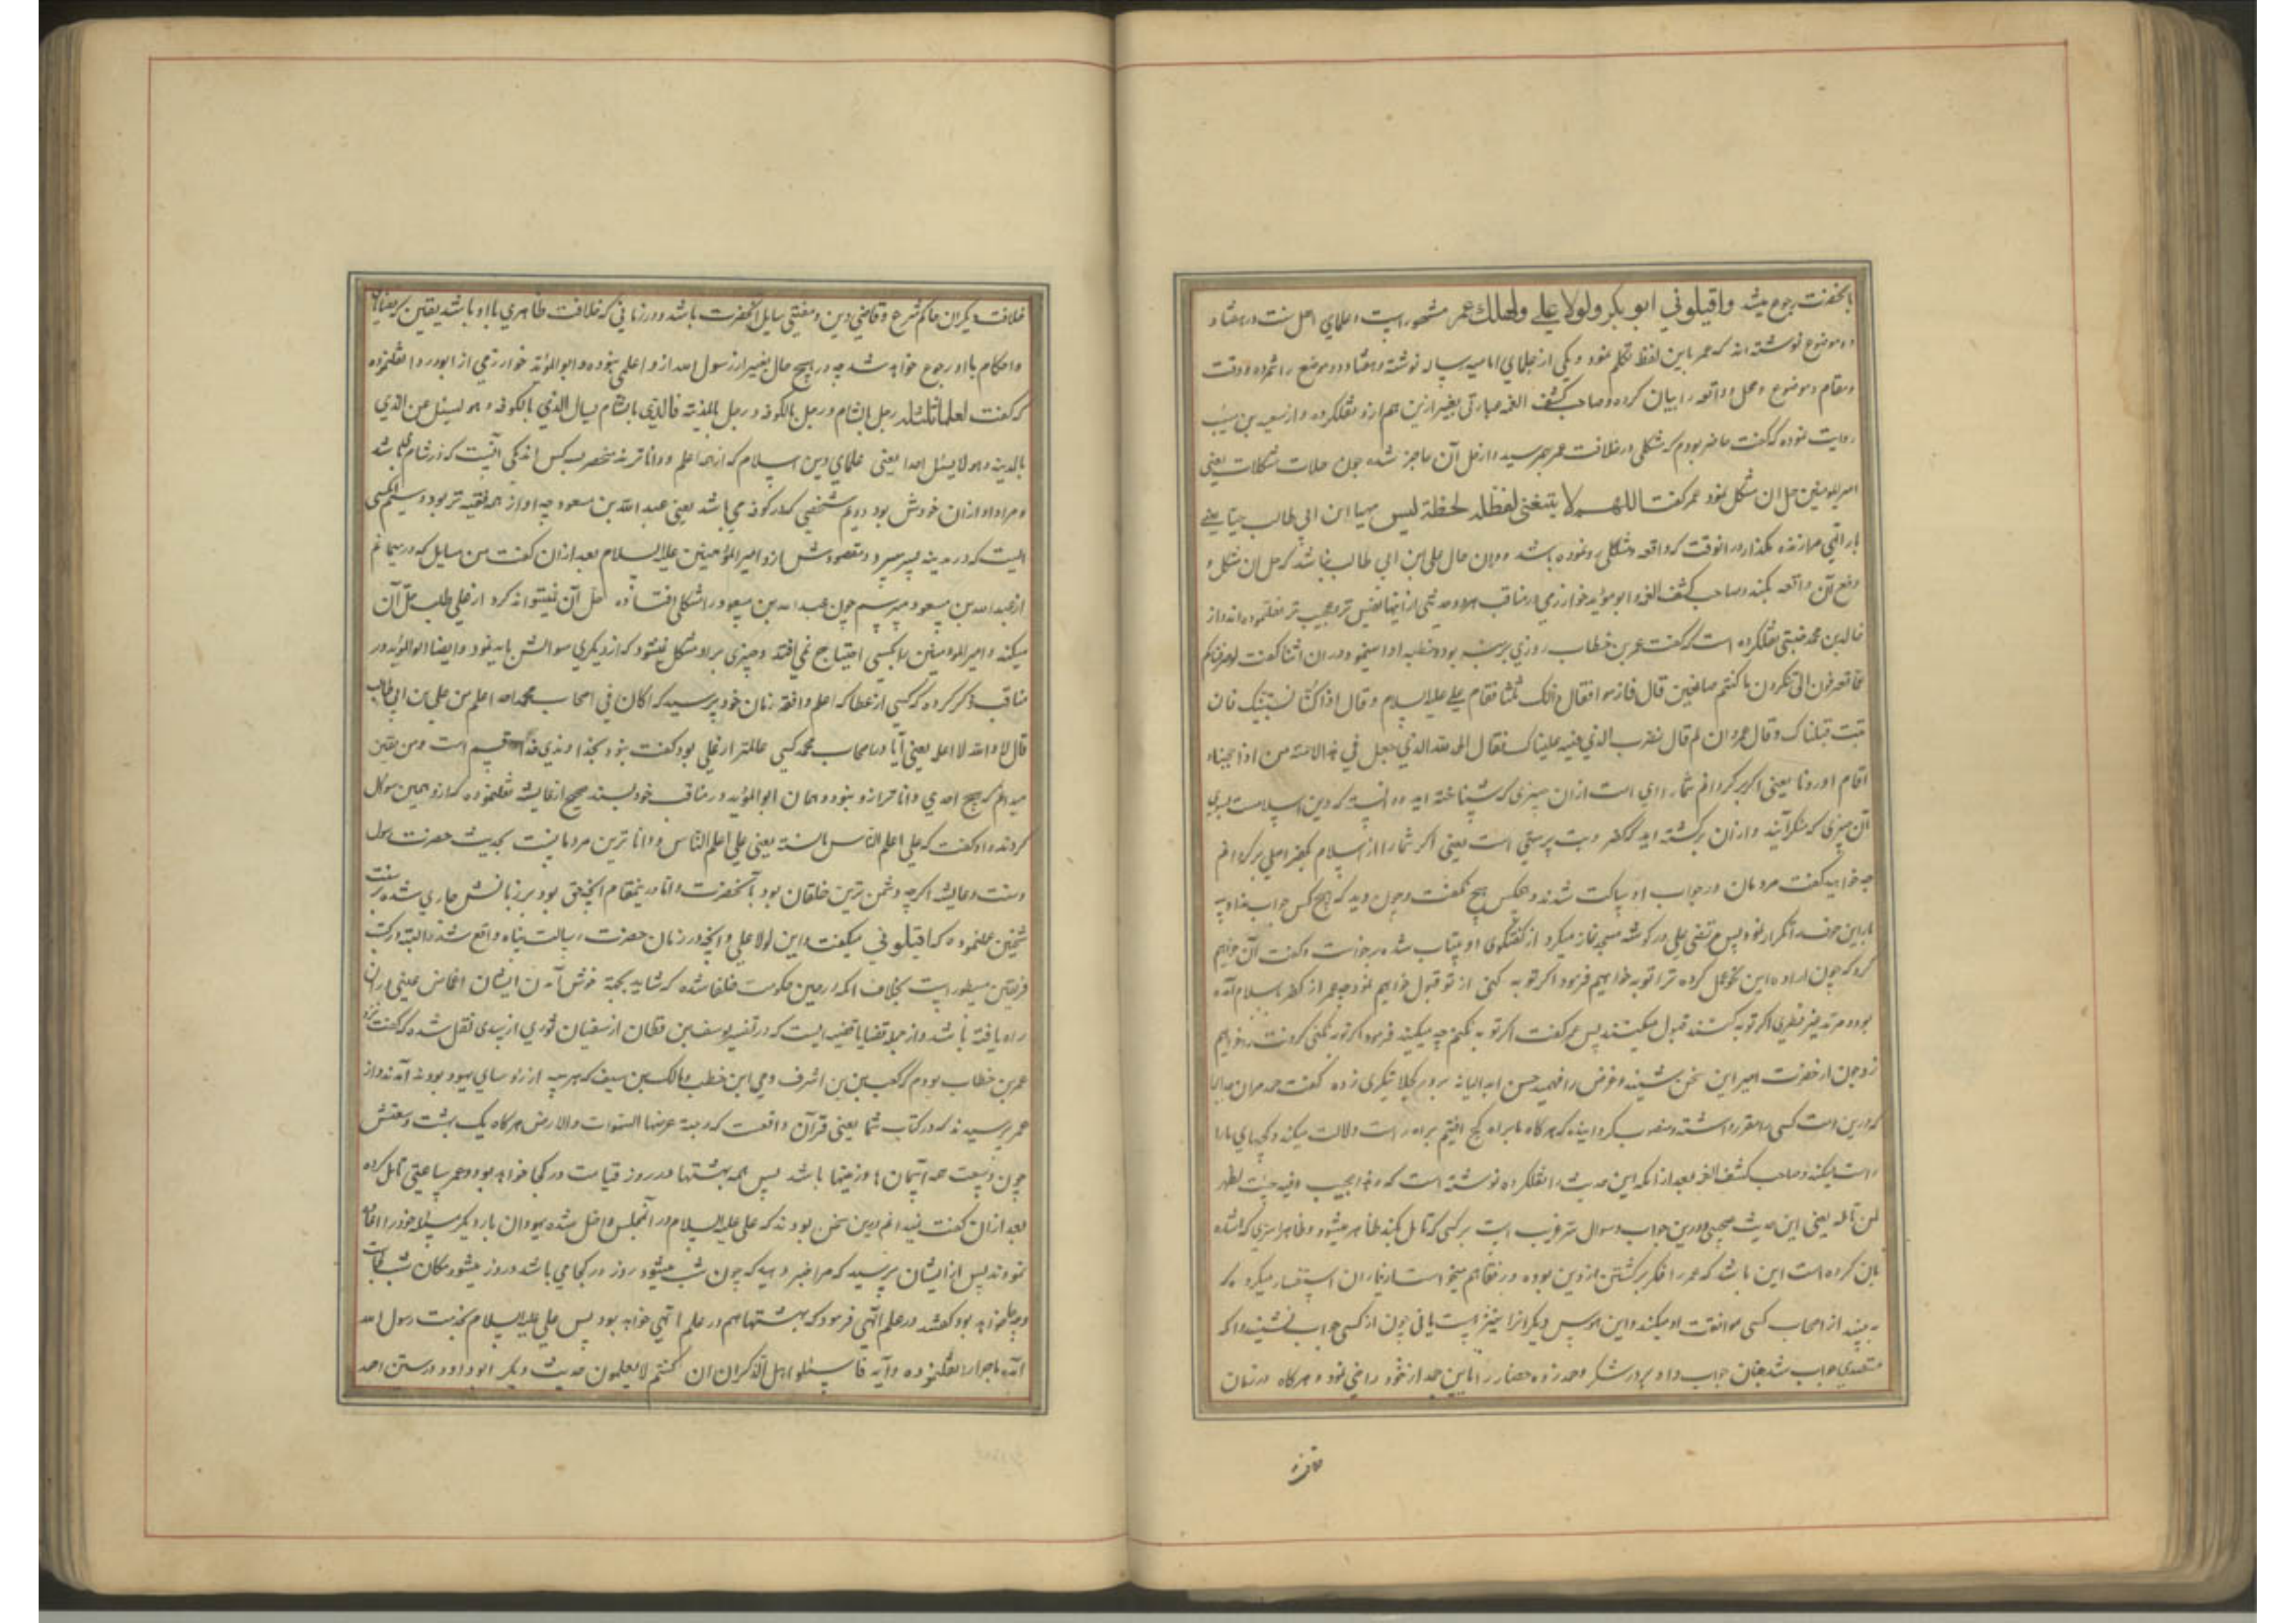 بآنحضرت رجوع میشد واقیلوني ابو بکر ولولا علي لهلك عمر مشهور است و علمای اهل سنت در هفتاد
و دو موضع نوشته اند که عمر باین لفظ تکلم نمود و یکی از علمای امامیه رساله نوشته و هفتاد و دو موضع را شمرده و وقت
و مقام و موضع و محل و واقعه را بیان کرده و صاحب کشف الغمه عبارتی بغیر ازین هم ازو نقلکرده و از سعید بن مسیب
روایت نموده که گفت حاضر بودم که مشکلی در خلافت عمر بهم رسید و از حل آن عاجز شده چون حلال مشکلات یعنی
امیر المومنین حل ان مشکل نمود عمر گفت اللهم لا تبقني لمعضلة ليس لها ابن ابي طالب حيا يعني
بار الهی مرا زنده مگذار در انوقت که واقعه و مشکلی رو نموده باشد و در ان حال علی ابن ابي طالب نباشد که حل ان مشکل و
رفع آن واقعه بکند و صاحب کشف الغمه و ابو موید خوارزمي در مناقب هر دو حدیثی از اینها نفیس تر و عجیب تر نقلنموده اند و از
خالد بن محمد ضبتی نقلکرده است که گفت عمر بن خطاب روزي بر منبر بود و خطبه ادا مینمود در ان اثنا گفت لو صرفناکم
عما تعرفون الی ما تنکرون ما کنتم صانعین قال فازموا فقال ذلک ثلثا فقام علی علیه السلام و قال اذا کنا نستتیبک فان
تبت قبلناک و قال عمر و ان لم قال نضرب الذي فیه عیناک فقال الحمد لله الذي جعل في هذه الامة من اذا اعوججنا
اقام اودنا یعنی اگر بر گردانم شما را از ان چیزی که شناخته اید و دانسته که دین اسلامست بسوی
آن چیزی که منکر آنید و از ان برگشته اید که کفر و بت پرستی است یعنی اگر شما را از اسلام بکفر اصلی برگردانم
چه خواهید گفت مردمان در جواب او ساکت شدند و هیچکس هیچ نگفت و چون دید که هیچ کس جواب نداد سه
بار این حرف را تکرار نمود پس مرتضی علی در گوشه مسجد نماز میکرد از گفتگوی او بیتاب شده برخواست و گفت آن خواهیم
کرد که چون اراده این نحو عمل کرده ترا توبه خواهیم فرمود اگر توبه کنی از تو قبول خواهیم نمود چه عمر از کفر باسلام آمده
بود و مرتد غیر فطری اگر توبه کنند قبول میکنند پس عمر گفت اگر توبه نکنم چه میکنید فرمود اگر توبه نکنی گردنت را خواهیم
زد چون از حضرت امیر این سخن شنید و غرض را فهمید گفت حمد مر ان خدایرا
که درین امت کسی را مقرر داشته و منصوب گردانیده که هر گاه ما براه کج افتیم براه راست دلالت میکند و کجیهای ما را
راست میکند و صاحب کشف الغمه بعد از انکه این حدیث را نقلکرده نوشته است که هذا عجیب و فیه خبث لظهر
لمن تامله یعنی این حدیث عجیبی و درین جواب و سوال سر غریب است بر کسی که تامل بکند ظاهر میشود و ظاهرا سری که اشاره
بان کرده است این باشد که عمر را فکر برگشتن از دین بوده و رفقا هم میخواست از یاران استفسار میکرد که
به بیند از اصحاب کسی موافقت او میکند و این
متصدی جواب شد چنان جواب داد و هر گاه در زمان
خلافت
خلافت دیگران حاکم شرع و قاضی دین و مفتی مسایل آنحضرت باشد و در زمانی که خلافت ظاهري با او باشد یقین که قضایا
و احکام باو رجوع خواهد شد چه در هیچ حال بغیر از رسول الله ازو اعلمی نبوده و ابو المؤید خوارزمي از ابو درداء نقلنموده
که گفت العلماء ثلثة رجل بالشام و رجل بالکوفه و رجل بالمدینه فالذي بالشام یسال الذي بالکوفه و هو یسئل عن الذي
بالمدینه و هو لا یسئل احدا یعنی علمای دین اسلام که از همه اعلم و داناترند منحصر به سه کس اند یکی آنست که در شام می باشد
و مراد او ازان خودش بود دویم شخصی که در کوفه می باشد یعنی عبد الله بن مسعود چه او از همه فقیه تر بود و سیم کسی
است که در مدینه بسر میبرد و مقصودش ازو امیر المؤمنین علیه السلام بعد ازان گفت من مسایل که در میمانم
از عبد الله بن مسعود میپرسم چون عبد الله بن مسعود را مشکلی افتاده حل آن نمیتواند کرد از علی طلب حل آن
میکند و امیر المومنین را بکسی احتیاج نمی افتد و چیزی برو مشکل نمیشود که از دیگری سوالش باید نمود و ایضا ابو المؤید در
مناقب ذکر کرده که کسی از عطا که اعلم و افقه زمان خود پرسید که اکان في اصحاب محمد احد اعلم من علي بن ابي طالب
قال لا والله لا اعلمه یعنی آیا در اصحاب محمد کسی عالمتر از علی بود گفت نبود بخداوندي خدا قسم است و من یقین
میدانم که هیچ احدي دانا تر ازو نبود و همان ابو المؤید در مناقب خود بسند صحیح از عایشه نقلنموده که ازو همین سوال
کردند و او گفت که علي اعلم الناس بالسنة یعنی علی اعلم الناس و دانا ترین مردمانست بحدیث حضرت رسول
و سنت و عایشه اگر چه دشمن ترین خلقان بود بآنحضرت و اما درینمقام آنچه حق بود بر زبانش جاری شده
شیخین علنموده که اقیلوني میگفت و این لولا علي و آنچه در زمان حضرت رسالت پناه واقع شده البته در کتب
فریقین مسطور است بخلاف انکه در حین حکومت خلفا شده که شاید بجهة خوش آمدن ایشان اغماض عینی دران
راه یافته باشد و از جمله قضایا قضیه ایست که در تفسیر یوسف بن قطان از سفیان ثوري از سدي نقل شده که گفت نزد
عمر بن خطاب بودم که کعب بن اشرف و حي ابن اخطب و مالک بن سیف که هر سه از روسای یهود بودند آمدند و از
عمر پرسیدند که در کتاب شما یعنی قرآن واقعست که و جنة عرضها السموات والارض هر گاه یک بهشت وسعتش
چون وسعت همه آسمان ها و زمینها باشد پس همه بهشتها در روز قیامت در کجا خواهد بود و عمر ساعتی تامل کرده
بعد ازان گفت نمیدانم درین سخن بودند که علی علیه السلام در آنمجلس داخل شده یهودان بار دیگر مسئله خود را القا
نمودند پس از ایشان پرسید که مرا خبر دهید که چون شب میشود روز در کجا می باشد و روز میشود مکان شب کجاست
و چه خواهد بود گفتند در علم الهی فرمود که بهشتها هم در علم الهی خواهد بود پس علی علیه السلام بخدمت رسول الله
آمده ماجرا را نقلنموده و آیه فاسئلوا اهل الذکر ان کنتم لا تعلمون حدیث دیگر ابو داود در سنن احمد